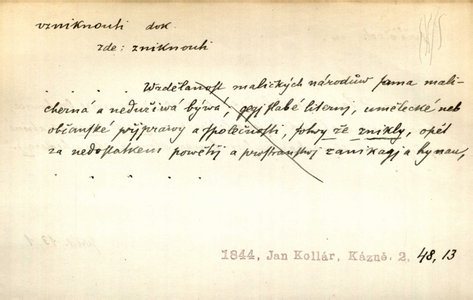 vzniknouti dok.
zde: zniknouti
. . . . . Wzdělanost malických národůw sama mali-
cherná a neduživá bývá, gegj slabé literný, umělecké neb
občanské přjprawy a společnosti, sotwy že znikly, opět
za nedostatkem powětřj a prostranstwj zanikagj a hynau,
. . . . .
1844, Jan Kollár, Kázně. 2, 48, 13